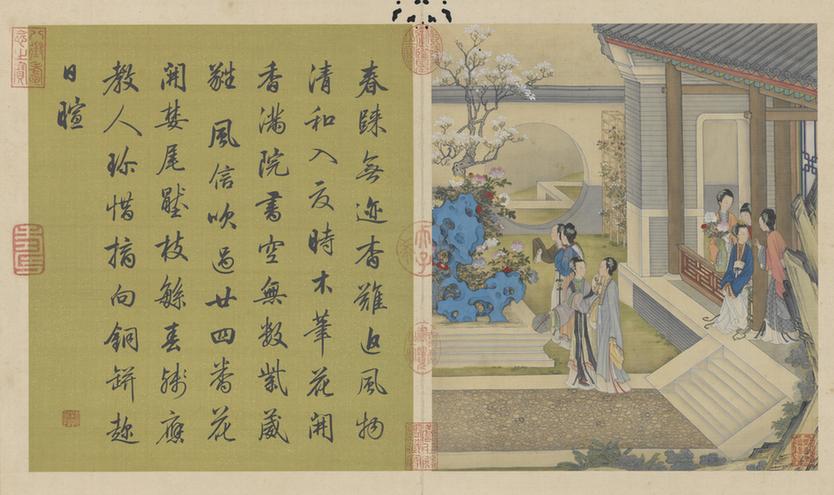 春踪無迹杳難追風物
清和入夏時木筆花開
香滿院書空無數紫葳
蕤風信吹過廿四番花
開婪尾壓枝繁春殘應
教人珍惜摘向銅缾趂
日暄